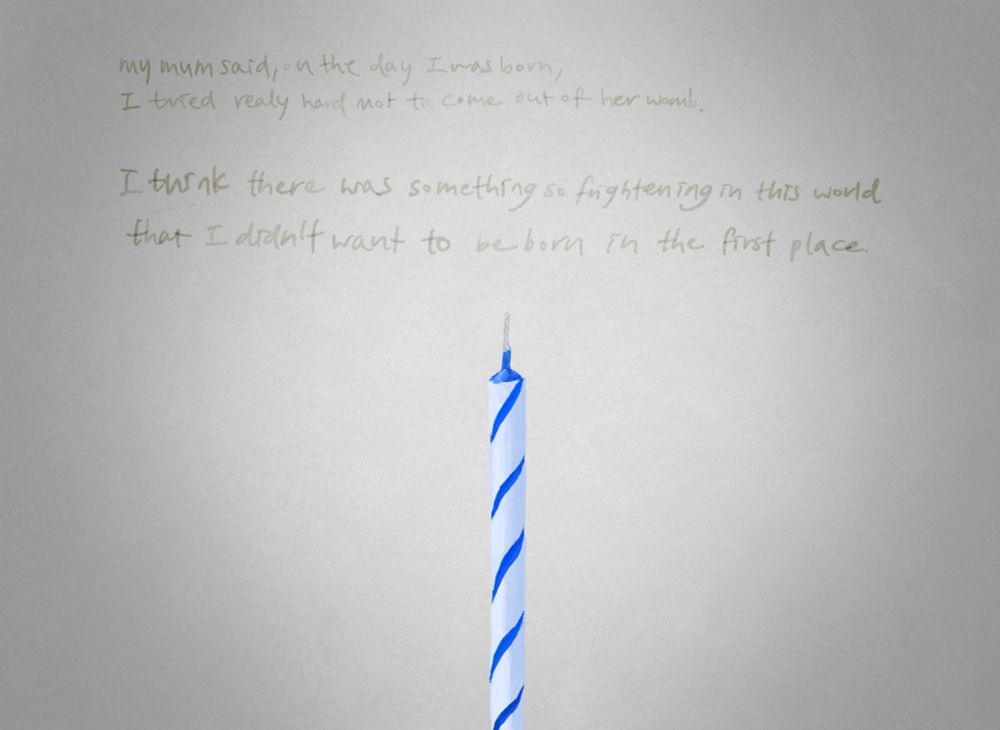 my mum said, on the day I was born,
I tried realy hard not to come out of her womb.
I think there was something so frightening in this world
that I didn't want to be born in the first place.